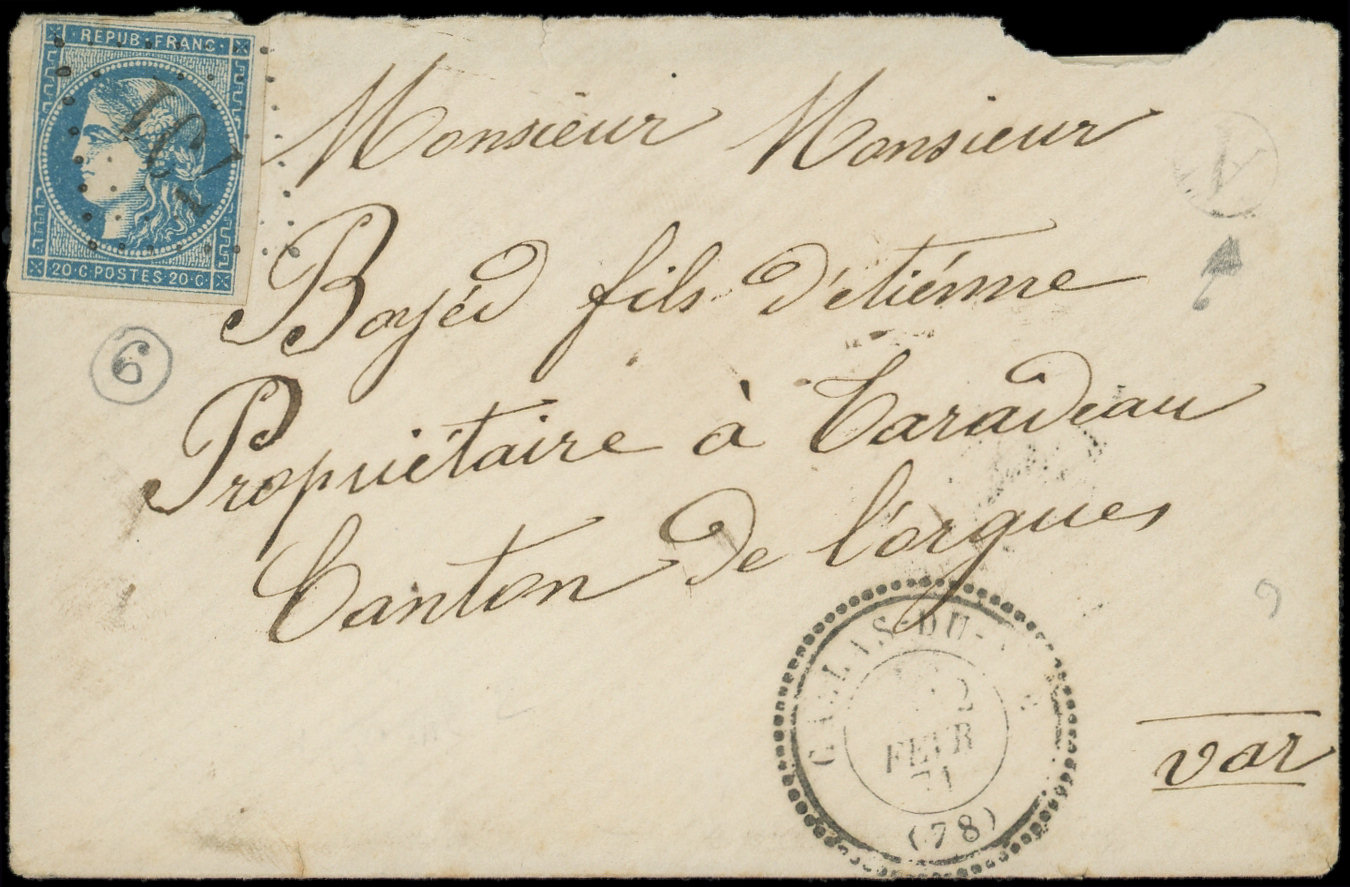 REPUB·FRANC
20·C·POSTES·20·C
Monsieur Monsieur
Boyéd fils d'étiénne
Propriétaire à Taradeau
Canton de l'orgues
var
6
A
CALLAS-DU-
2
FEVR
71
(78)